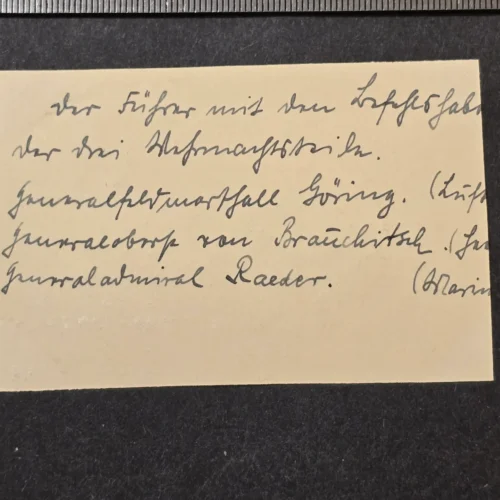 Der Führer mit den Befehlshab
der drei Wehrmachtsteile.
Generalfeldmarschall Göring. (Luft
Generaloberst von Brauchitsch. (He
Generaladmiral Raeder. (Marin